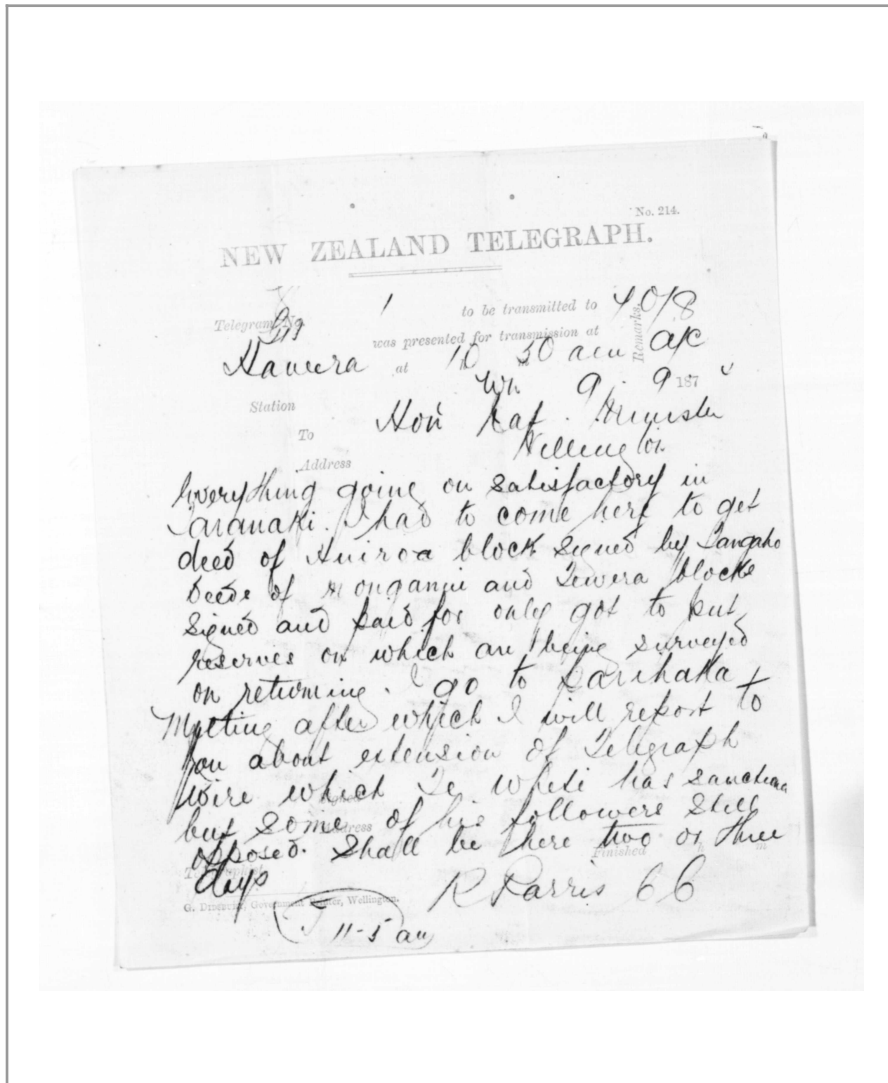 No. 214.
NEW ZEALAND TELEGRAPH.
Telegram No. 1 to be transmitted to 40/8
was presented for transmission at Remarks. a/c
Hawera at 10 h 30 am
Wn 9. 9 187
Station
To Hon Nat. Minister
Wellington
Address
Everything going on satisfactory in
Taranaki. I had to come here to get
deed of Huiroa block signed by Tangaho
Deeds of and Tewera blocks
signed and paid for only got to put
reserves on which are being surveyed
on returning. I go to Parihaka
Meeting after which I will report to
you about extension of Telegraph
wire which Te Whiti has
but some of his followers still
opposed. Shall be there two or three
Finished h m
days R Parris CC
G. Government Printer, Wellington.
11-5 am